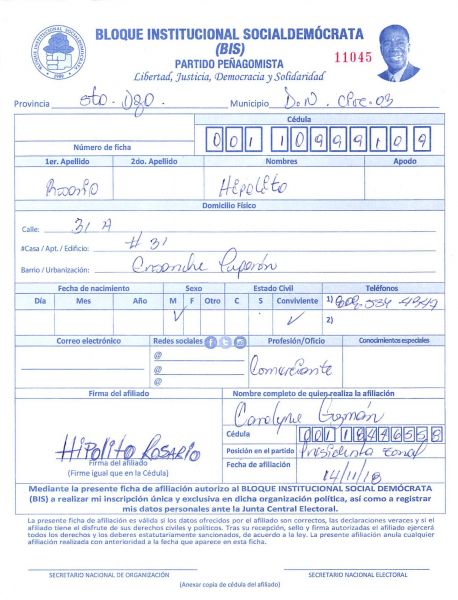 BLOQUE INSTITUCIONAL SOCIALDEMÓCRATA
(BIS)
PARTIDO PEÑAGOMISTA
11045
Libertad, Justicia, Democracia y Solidaridad
BLOQUE INSTITUCIONAL SOCIALDEMOCRATA
Provincia Sto. Dgo. Municipio D.N. Circ-03
Cédula
Número de ficha
1er. Apellido 2do. Apellido Nombres Apodo
Rosario Hipolito
Domicilio Físico
Calle: 31 A
#Casa / Apt. / Edificio: # 31
Barrio / Urbanización:
Fecha de nacimiento Sexo Estado Civil Teléfonos
Día Mes Año M F Otro C S Conviviente 1)
2)
Correo electrónico Redes sociales Profesión/Oficio Conocimientos especiales
@
@
@
Comerciante
Firma del afiliado Nombre completo de quien realiza la afiliación
Carolyne Guzmán
Cédula
HIPOLITO ROSARIO
Posición en el partido Presidenta zonal
Firma del afiliado
(Firme igual que en la Cédula)
Fecha de afiliación 14/11/18
Mediante la presente ficha de afiliación autorizo al BLOQUE INSTITUCIONAL SOCIAL DEMÓCRATA
(BIS) a realizar mi inscripción única y exclusiva en dicha organización política, así como a registrar
mis datos personales ante la Junta Central Electoral.
La presente ficha de afiliación es válida si los datos ofrecidos por el afiliado son correctos, las declaraciones veraces y si el
afiliado tiene el disfrute de sus derechos civiles y políticos. Tras su recepción, sello y firma autorizada el afiliado ejercerá
todos los derechos y los deberes estatutariamente sancionados, de acuerdo a la ley. La presente afiliación anula cualquier
afiliación realizada con anterioridad a la fecha que aparece en esta ficha.
SECRETARIO NACIONAL DE ORGANIZACIÓN SECRETARIO NACIONAL ELECTORAL
(Anexar copia de cédula del afiliado)